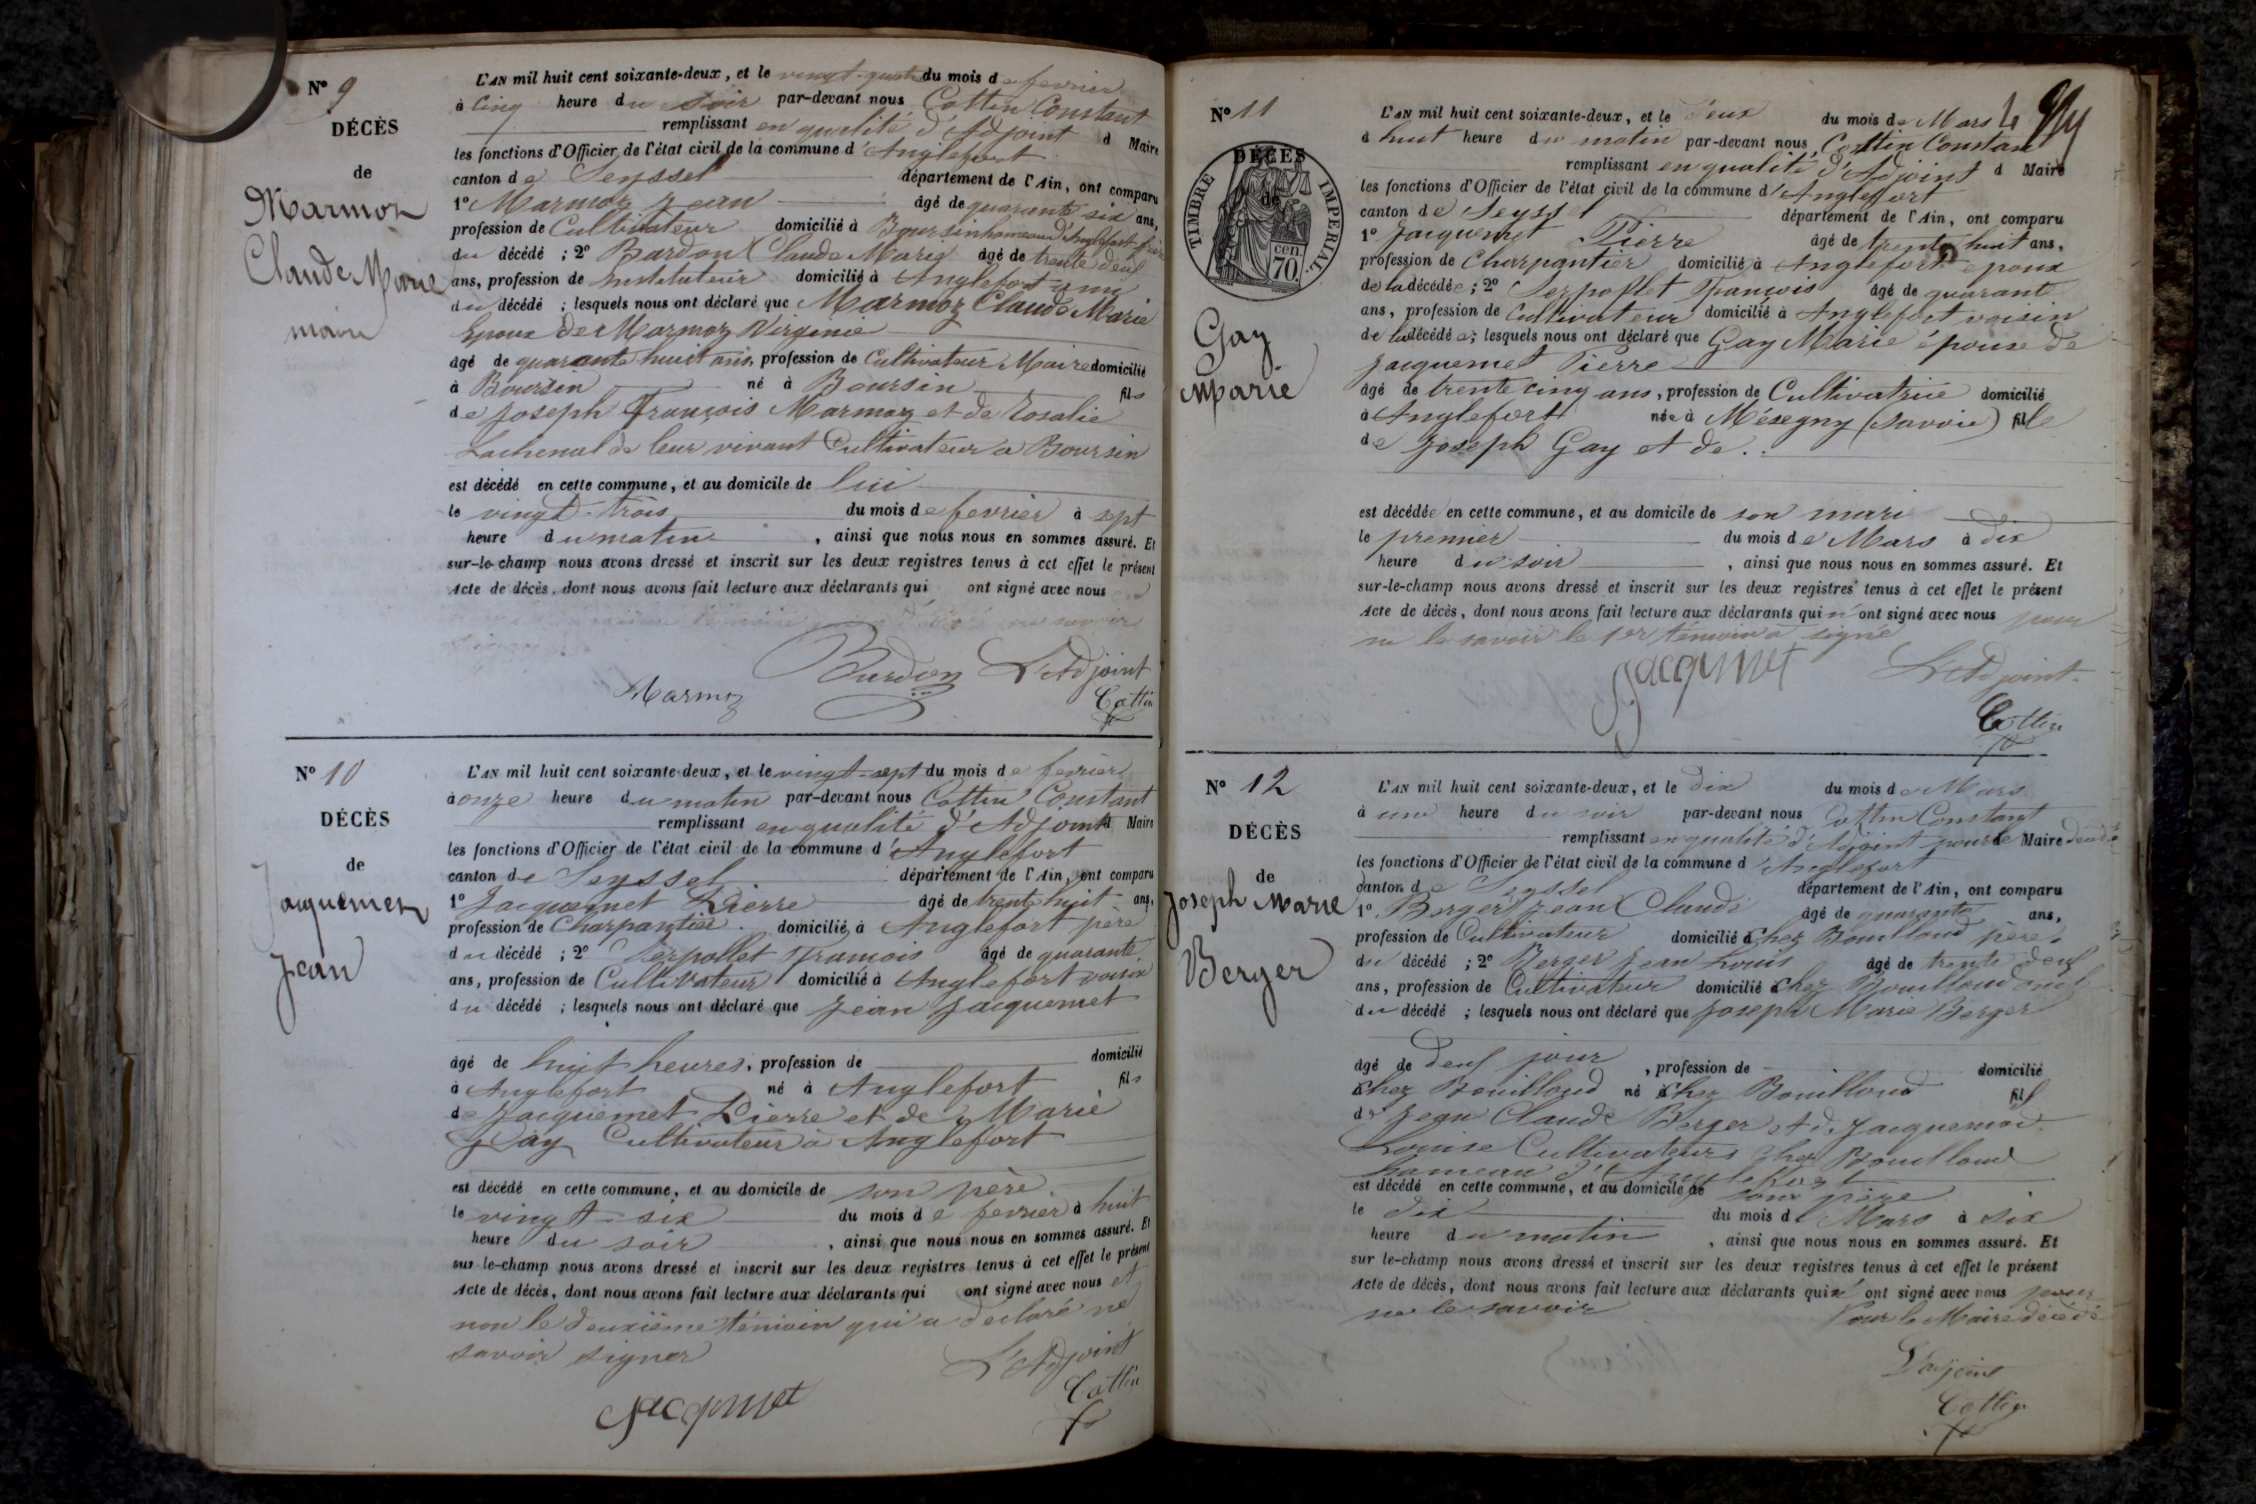 N° 9
DÉCÈS
de
Marmoz
Claude Marie
maire
L'AN mil huit cent soixante-deux, et le vingt-quatre du mois de fevrier
à cinq heure du soir par-devant nous Cottin Constant
remplissant en qualité d'Adjoint d Maire
les fonctions d'Officier de l'état civil de la commune d'Anglefort
canton de Seyssel département de l'Ain, ont comparu
1° Marmoz Jean âgé de quarante six ans,
profession de Cultivateur domicilié à Boursin hameau d'Anglefort frère
du décédé ; 2° Bardon Claude Marie âgé de trente deux
ans, profession de Instituteur domicilié à Anglefort ami
du décédé ; lesquels nous ont déclaré que Marmoz Claude Marie
Epoux de Marmoz Virginie
âgé de quarante huit ans, profession de Cultivateur Maire domicilié
à Boursin né à Boursin fils
de Joseph François Marmoz et de Rosalie
Lachenal de leur vivant Cultivateur a Boursin
est décédé en cette commune, et au domicile de lui
le vingt-trois du mois de fevrier à sept
heure du matin , ainsi que nous nous en sommes assuré. Et
sur-le-champ nous avons dressé et inscrit sur les deux registres tenus à cet effet le présent
Acte de décès, dont nous avons fait lecture aux déclarants qui ont signé avec nous
savoir
Marmoz Burdon L'Adjoint
Cottin
N° 10
DÉCÈS
de
Jacquemet
Jean
L'AN mil huit cent soixante-deux, et le vingt-sept du mois de fevrier
à onze heure du matin par-devant nous Cottin Constant
remplissant en qualité d'Adjoint d Maire
les fonctions d'Officier de l'état civil de la commune d'Anglefort
canton de Seyssel département de l'Ain, ont comparu
1° Jacquemet Pierre âgé de trente huit ans,
profession de Charpantier domicilié à Anglefort pere
du décédé ; 2° Serpollet François âgé de quarante
ans, profession de Cultivateur domicilié à Anglefort voisin
du décédé ; lesquels nous ont déclaré que Jean Jacquemet
âgé de huit heures, profession de domicilié
à Anglefort né à Anglefort fils
de Jacquemet Pierre et de Marie
Gay Cultivateur à Anglefort
est décédé en cette commune, et au domicile de son père
le vingt-six du mois de fevrier à huit
heure du soir , ainsi que nous nous en sommes assuré. Et
sur-le-champ nous avons dressé et inscrit sur les deux registres tenus à cet effet le présent
Acte de décès, dont nous avons fait lecture aux déclarants qui ont signé avec nous et
non le deuxième témoin qui a déclaré ne
savoir signer
L'Adjoint
Jacqmet Cottin
N° 11
TIMBRE IMPÉRIAL
cen. 70
DÉCÈS
de
Gay
Marie
L'AN mil huit cent soixante-deux, et le deux du mois de Mars
à huit heure du matin par-devant nous Cottin Constant
remplissant en qualité d'Adjoint d Maire
les fonctions d'Officier de l'état civil de la commune d'Anglefort
canton de Seyssel département de l'Ain, ont comparu
1° Jacquemet Pierre âgé de trente huit ans,
profession de Charpantier domicilié à Anglefort époux
de la décédée ; 2° Serpollet François âgé de quarante
ans, profession de Cultivateur domicilié à Anglefort voisin
de la décédée ; lesquels nous ont déclaré que Gay Marie épouse de
Jacquemet Pierre
âgé de trente cinq ans, profession de Cultivatrice domicilié
à Anglefort née à Mésegny (Savoie) fille
de Joseph Gay et de
est décédée en cette commune, et au domicile de son mari
le premier du mois de Mars à dix
heure du soir , ainsi que nous nous en sommes assuré. Et
sur-le-champ nous avons dressé et inscrit sur les deux registres tenus à cet effet le présent
Acte de décès, dont nous avons fait lecture aux déclarants qui n'ont signé avec nous pour
ne le savoir le 1er témoin a signé
Jacqmet L'Adjoint
Cottin
N° 12
DÉCÈS
de
Joseph Marie
Berger
L'AN mil huit cent soixante-deux, et le dix du mois de Mars
à une heure du soir par-devant nous Cottin Constant
remplissant en qualité d'Adjoint pour le Maire décédé
les fonctions d'Officier de l'état civil de la commune d'Anglefort
canton de Seyssel département de l'Ain, ont comparu
1° Berger Jean Claude âgé de quarante ans,
profession de Cultivateur domicilié chez Bouilloud père
du décédé ; 2° Berger Jean Louis âgé de trente deux
ans, profession de Cultivateur domicilié chez Bouilloud oncle
du décédé ; lesquels nous ont déclaré que Joseph Marie Berger
âgé de deux jour , profession de domicilié
chez Bouilloud né chez Bouilloud fils
de Jean Claude Berger et d. Jacquemod
Louise Cultivateurs chez Bouilloud
hameau d'Anglefort
est décédé en cette commune, et au domicile de son père
le dix du mois de Mars à six
heure du matin , ainsi que nous nous en sommes assuré. Et
sur le-champ nous avons dressé et inscrit sur les deux registres tenus à cet effet le présent
Acte de décès, dont nous avons fait lecture aux déclarants qui n'ont signé avec nous pour
ne le savoir Pour le Maire décédé
L'adjoint
Cottin